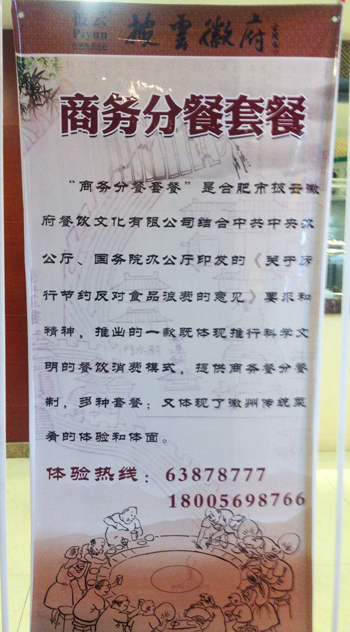 披云
Piyun
披雲徽府
商务分餐套餐
“商务分餐套餐”是合肥市披云徽
府餐饮文化有限公司结合中共中央办
公厅、国务院办公厅印发的《关于厉
行节约反对食品浪费的意见》要求和
精神，推出的一款既体现推行科学文
明的餐饮消费模式，提供商务餐分餐
制，多种套餐；又体现了徽州传统菜
肴的体验和体面。
体验热线：63878777
18005698766